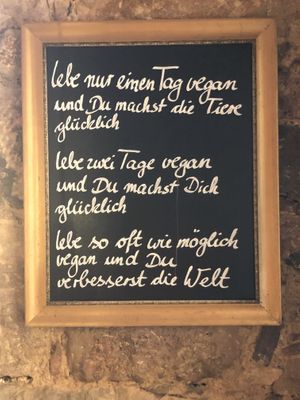 lebe nur einen Tag vegan
und Du machst die Tiere
glücklich
lebe zwei Tage vegan
und Du machst Dich
glücklich
lebe so oft wie möglich
vegan und Du
verbesserst die Welt